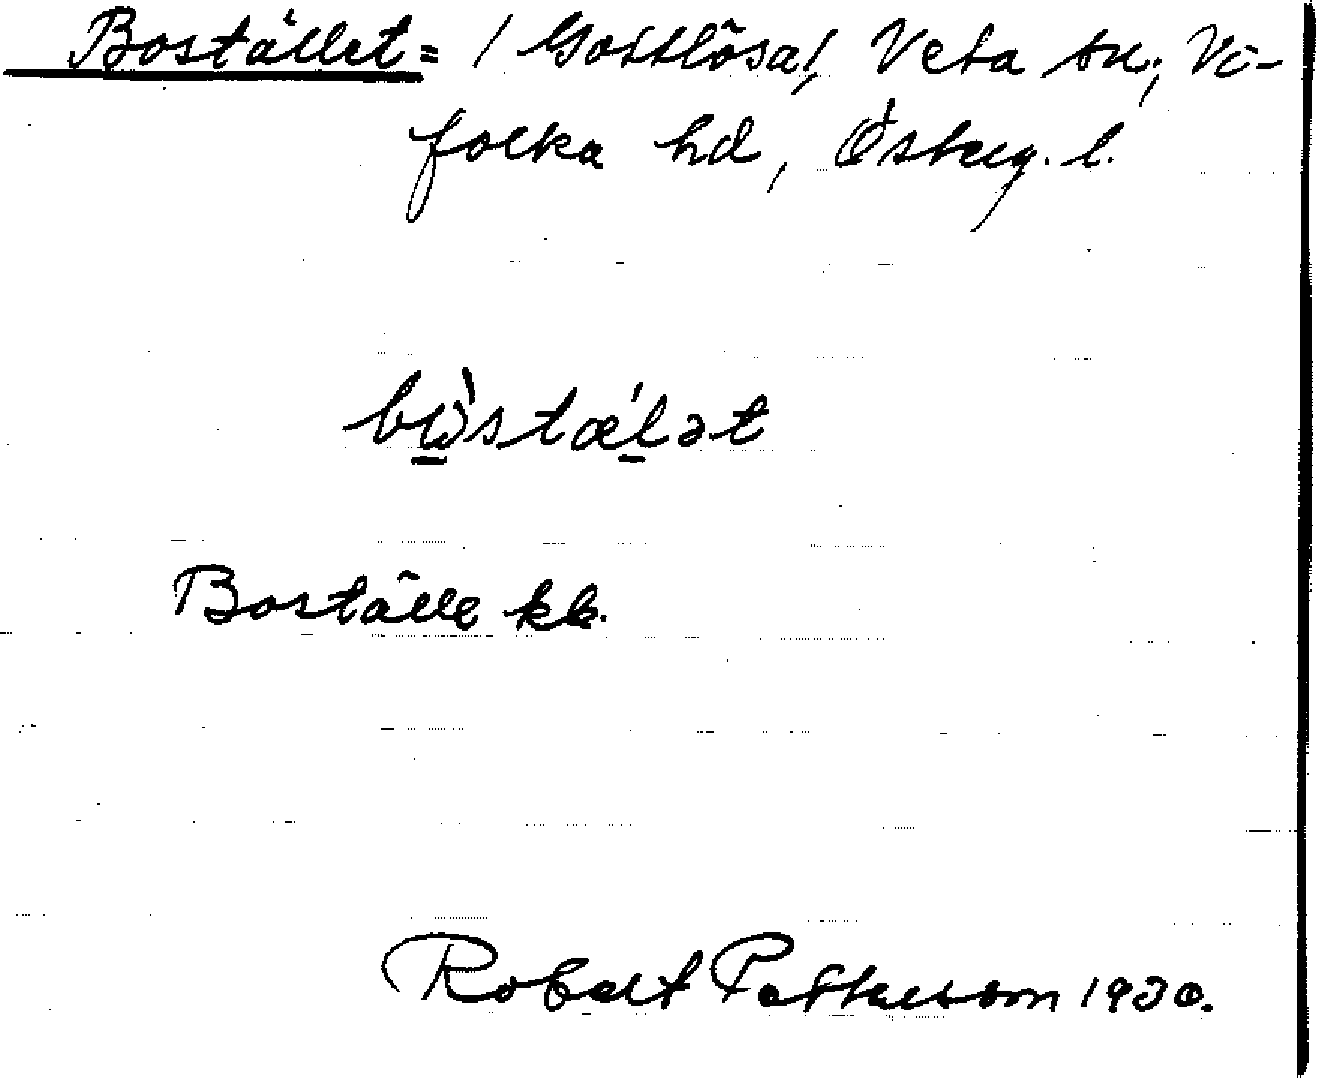 Bostället = / Gottlösa/, Veta sn, Vi-
folka hd, Österg. l.
bὼstǽlət
Boställe kb.
Robert Pettersson 1930.